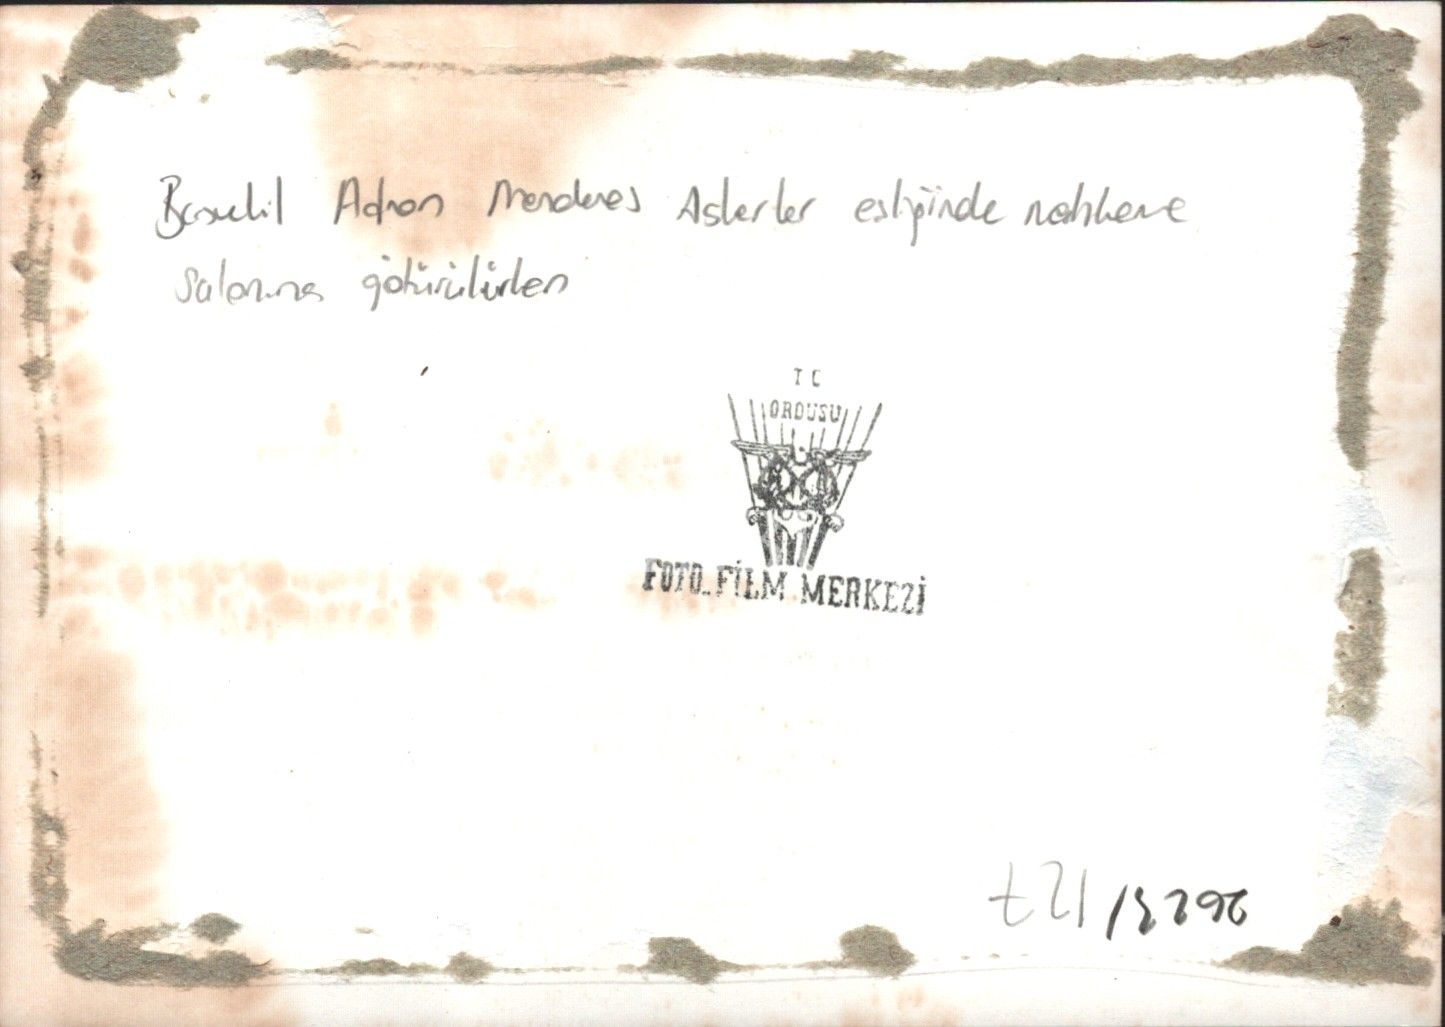 Başvekil Adnan Menderes Askerler eşliğinde mahkeme
salonuna götürülürken
T C
ORDUSU
FOTO-FİLM MERKEZİ